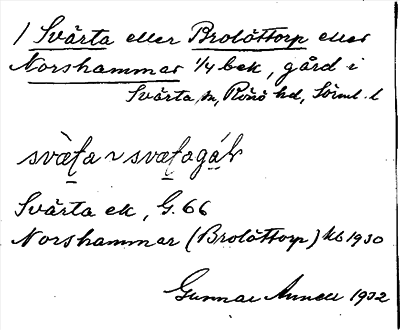 1 Svärta eller Brolöttorp eller
Norshammar 1/4 bek, gård i
Svärta sn, Rönö hd, Sörml. l
svæ̀ʈa ~ svæʈagá
Svärta ek, G. 66
Norshammar (Brolöttorp) kb 1930
Gunnar Annell 1932